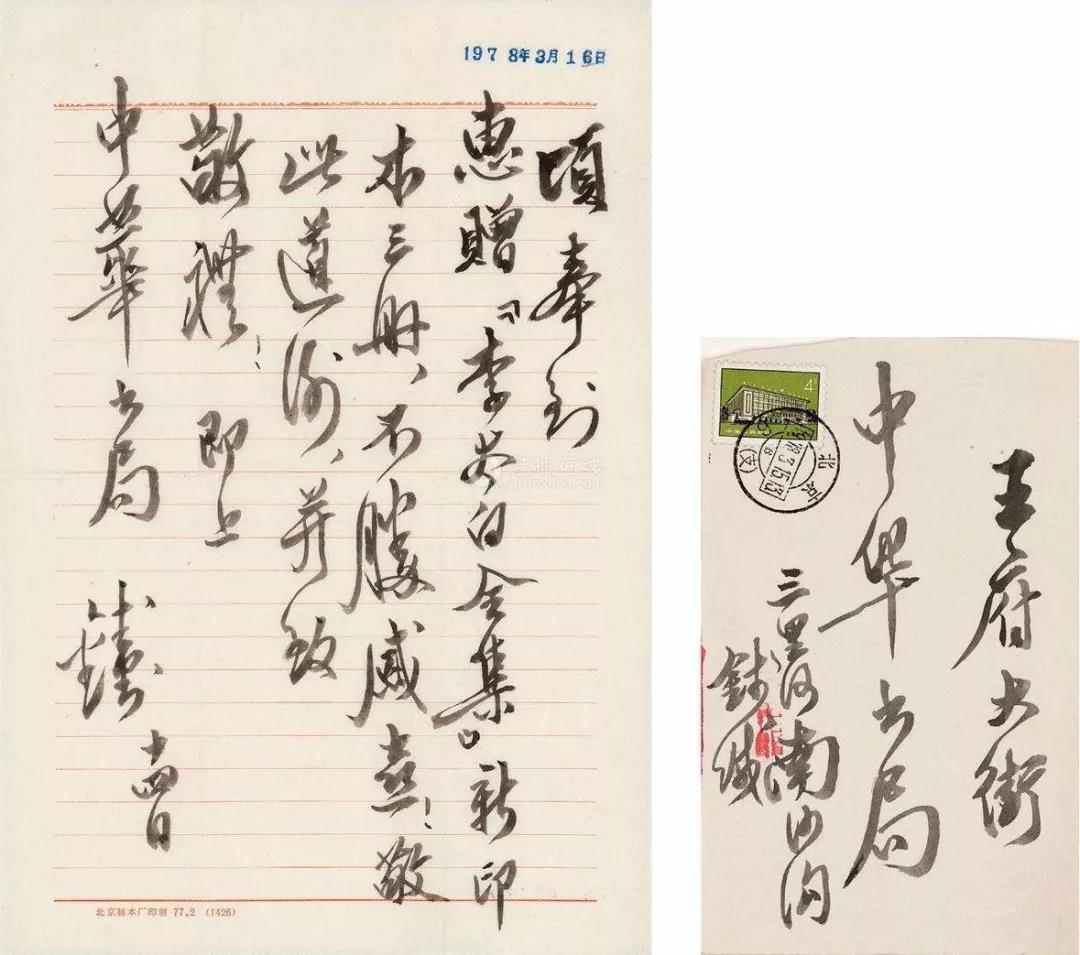 1978年3月16日
頃奉到
惠贈『李太白全集』新印
本三册、不勝感熹！敬
此道谢、并致
敬禮！即上
中華书局 十四日
北京制本厂印制 77.2 (1426)
4
北京
王府大街
中华书局
三里河南沙沟
钱缄